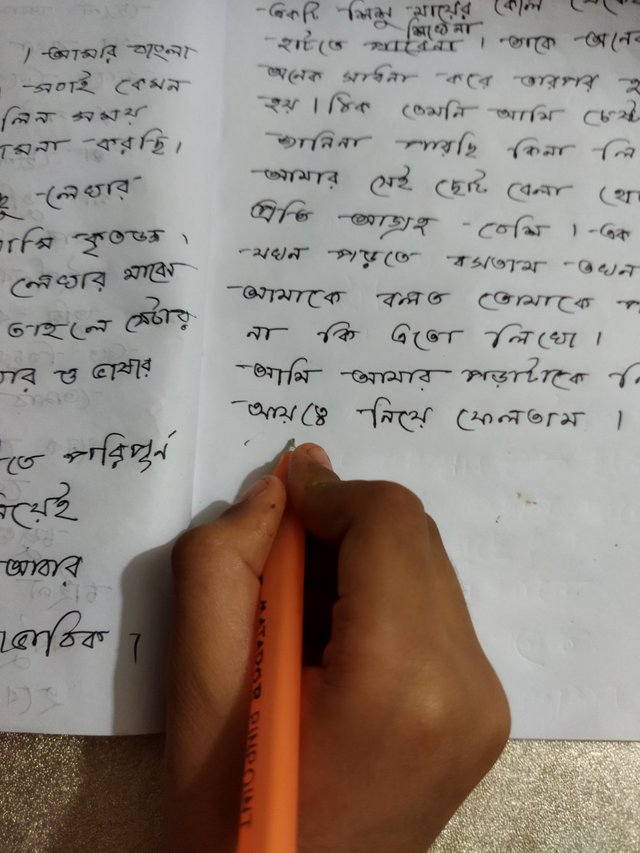 । আমার বাংলা
সবাই কেমন
সময়
করছি।
লেখার
আমি কৃতজ্ঞ।
লেখার মাঝে
তাহলে সেটার
ও ভাষার
তে পরিপূর্ণ
নিয়েই
আবার
একটি শিশু মায়ের কোল থেকে
শিখেনা
হাটতে পারেনা। তাকে অনেক
অনেক সাধনা করে তারপর হ
হয়। ঠিক তেমনি আমি চেষ্ট
জানিনা পারছি কিনা লি
আমার সেই ছোট বেলা থে
প্রতি আগ্রহ বেশি। এক
যখন পড়তে বসতাম তখন
আমাকে বলত তোমাকে প
না কি এতো লিখো।
আমি আমার পড়াটাকে লি
আয়ত্বে নিয়ে ফেলতাম।
MATADOR PINPOINT